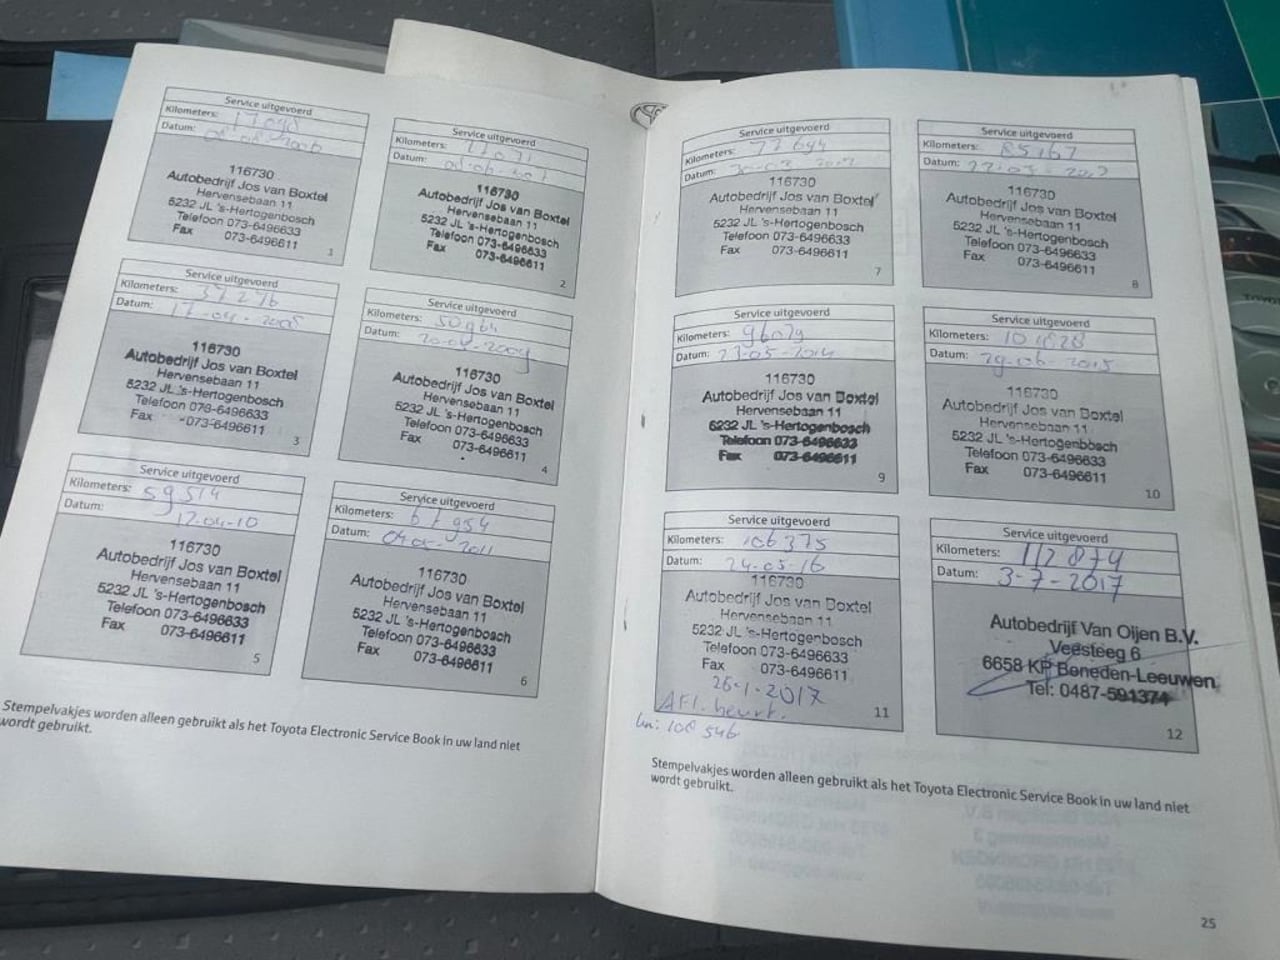 Service uitgevoerd
Kilometers:
Datum: 2006
116730
Autobedrijf Jos van Boxtel
Hervensebaan 11
5232 JL 's-Hertogenbosch
Telefoon 073-6496633
Fax 073-6496611
1
Service uitgevoerd
Kilometers:
Datum:
116730
Autobedrijf Jos van Boxtel
Hervensebaan 11
5232 JL 's-Hertogenbosch
Telefoon 073-6496633
Fax 073-6496611
2
Service uitgevoerd
Kilometers: 37276
Datum: 17-04-2008
116730
Autobedrijf Jos van Boxtel
Hervensebaan 11
5232 JL 's-Hertogenbosch
Telefoon 073-6496633
Fax 073-6496611
3
Service uitgevoerd
Kilometers: 50964
Datum:
116730
Autobedrijf Jos van Boxtel
Hervensebaan 11
5232 JL 's-Hertogenbosch
Telefoon 073-6496633
Fax 073-6496611
4
Service uitgevoerd
Kilometers: 59514
Datum: 12-04-10
116730
Autobedrijf Jos van Boxtel
Hervensebaan 11
5232 JL 's-Hertogenbosch
Telefoon 073-6496633
Fax 073-6496611
5
Service uitgevoerd
Kilometers:
Datum: 04-05-2011
116730
Autobedrijf Jos van Boxtel
Hervensebaan 11
5232 JL 's-Hertogenbosch
Telefoon 073-6496633
Fax 073-6496611
6
Stempelvakjes worden alleen gebruikt als het Toyota Electronic Service Book in uw land niet
wordt gebruikt.
Service uitgevoerd
Kilometers: 77694
Datum:
116730
Autobedrijf Jos van Boxtel
Hervensebaan 11
5232 JL 's-Hertogenbosch
Telefoon 073-6496633
Fax 073-6496611
7
Service uitgevoerd
Kilometers: 85167
Datum:
116730
Autobedrijf Jos van Boxtel
Hervensebaan 11
5232 JL 's-Hertogenbosch
Telefoon 073-6496633
Fax 073-6496611
8
Service uitgevoerd
Kilometers: 96079
Datum: 23-05-2014
116730
Autobedrijf Jos van Boxtel
Hervensebaan 11
5232 JL 's-Hertogenbosch
Telefoon 073-6496633
Fax 073-6496611
9
Service uitgevoerd
Kilometers:
Datum: 29-06-2015
116730
Autobedrijf Jos van Boxtel
Hervensebaan 11
5232 JL 's-Hertogenbosch
Telefoon 073-6496633
Fax 073-6496611
10
Service uitgevoerd
Kilometers: 106375
Datum: 24-05-16
116730
Autobedrijf Jos van Boxtel
Hervensebaan 11
5232 JL 's-Hertogenbosch
Telefoon 073-6496633
Fax 073-6496611
26-1-2017
Afl. beurt.
km: 108546
11
Service uitgevoerd
Kilometers: 112874
Datum: 3-7-2017
Autobedrijf Van Oijen B.V.
Veesteeg 6
6658 KP Beneden-Leeuwen
Tel: 0487-591374
12
Stempelvakjes worden alleen gebruikt als het Toyota Electronic Service Book in uw land niet
wordt gebruikt.
25